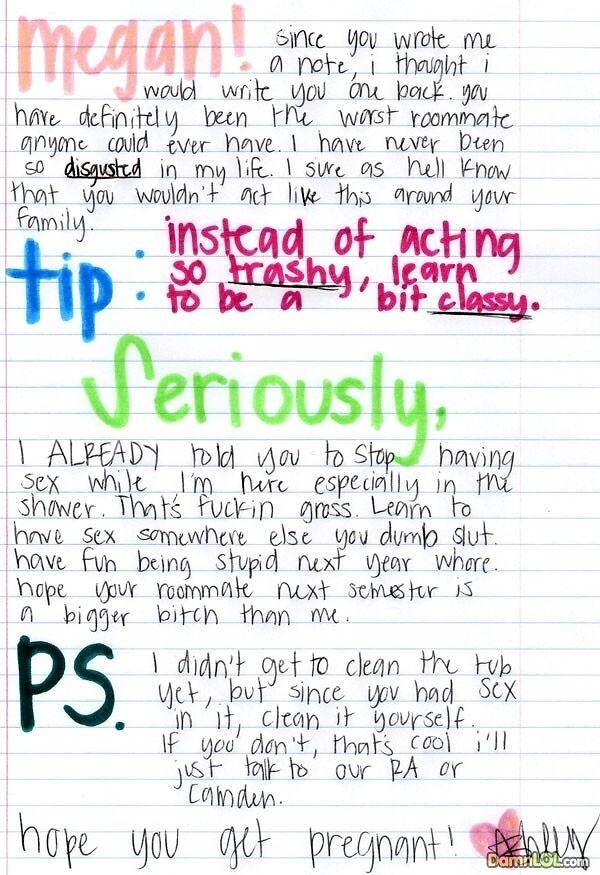 megan! since you wrote me
a note, i thought i
would write you one back. you
have definitely been the worst roommate
anyone could ever have. I have never been
so disgusted in my life. I sure as hell know
that you wouldn't act like this around your
family.
tip: instead of acting
so trashy, learn
to be a bit classy.
Seriously,
I ALREADY told you to stop having
sex while I'm here especially in the
shower. That's fuckin gross. Learn to
have sex somewhere else you dumb slut.
have fun being stupid next year whore.
hope your roommate next semester is
a bigger bitch than me.
PS. I didn't get to clean the tub
yet, but since you had sex
in it, clean it yourself.
If you don't, that's cool i'll
just talk to our RA or
Camden.
hope you get pregnant! Ashley
DamnLOL.com